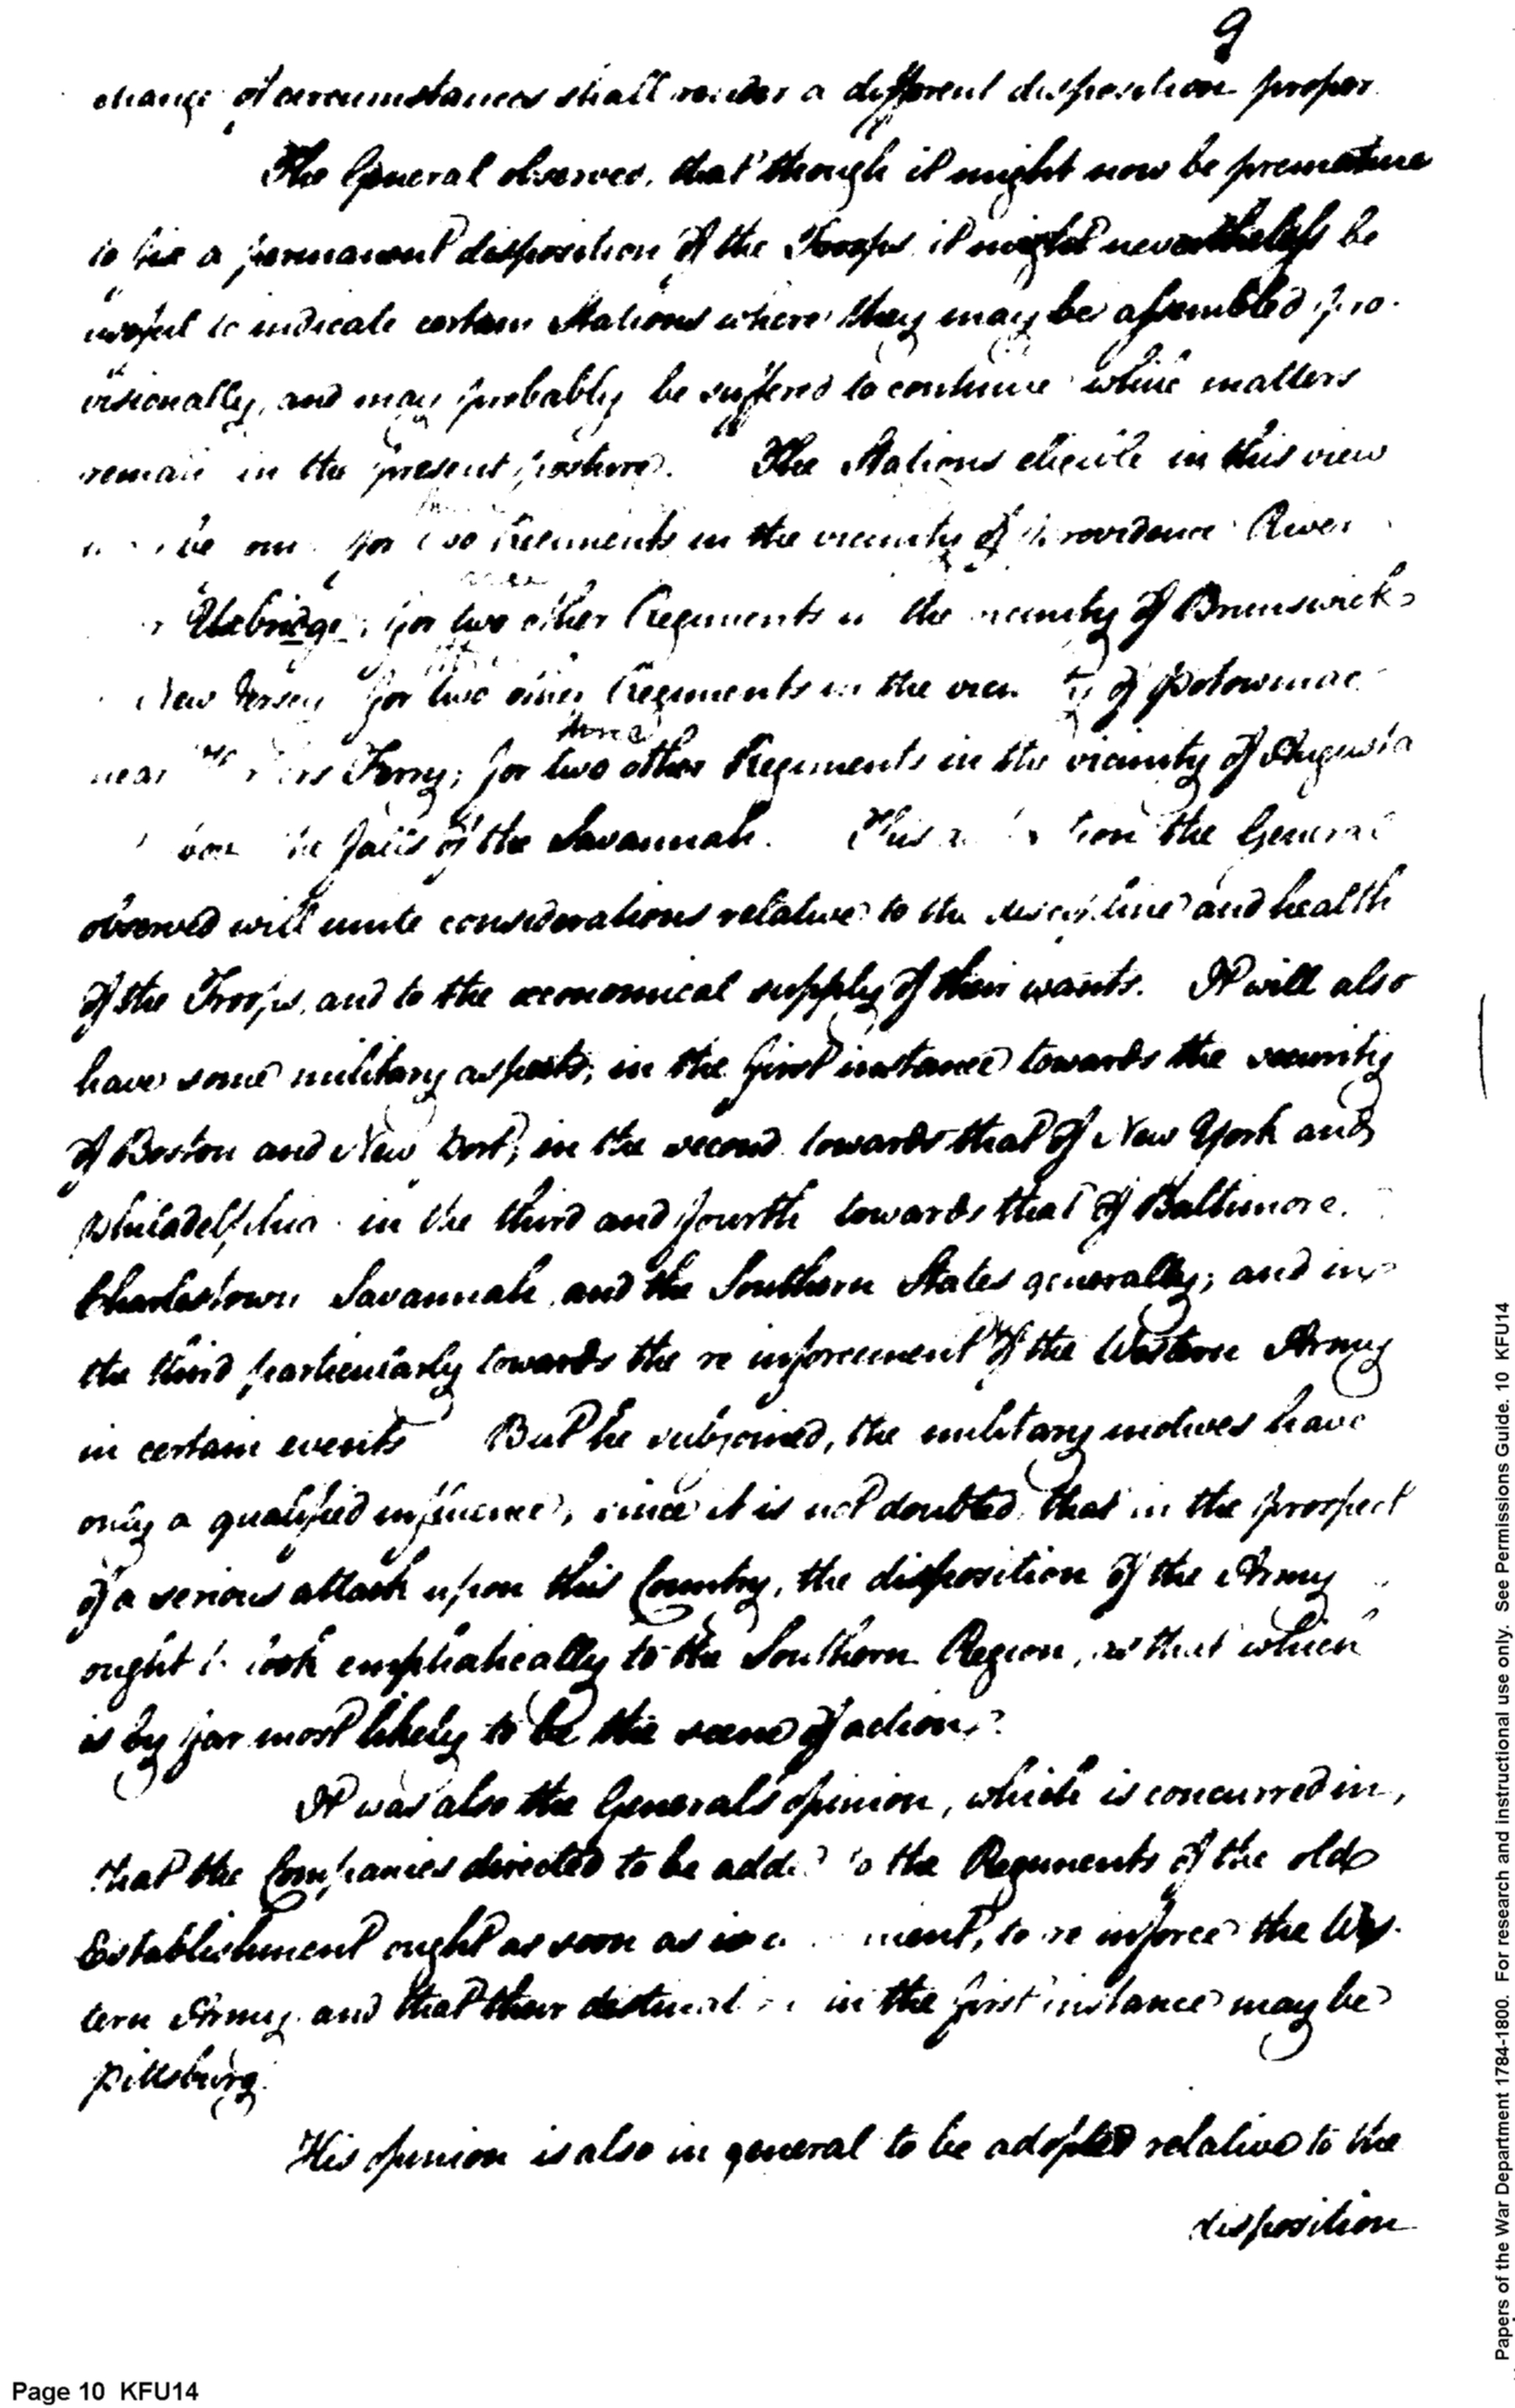 9
change of circumstances shall render a different disposition proper.
The General observed, that though it might now be premature
to fix a permanent disposition of the Troops, it might nevertheless be
useful to indicate certain Stations where they may be assembled pro-
visionally, and may probably be suffered to continue while matters
remain in the present posture. The Stations eligible in this view
be one for two Regiments in the vicinity of Providence River
Uxbridge; for two other Regiments in the vicinity of Brunswick
New Jersey for two other Regiments in the vicinity of Potowmac
three
near Ferry; for two other Regiments in the vicinity of Augusta
the falls of the Savannah. This the General
observed will unite considerations relative to the discipline and health
of the Troops, and to the œconomical supply of their wants. It will also
have some military aspects; in the first instance towards the security
of Boston and New Port; in the second towards that of New York and
Philadelphia in the third and fourth towards that of Baltimore.
Charlestown Savannah and the Southern States generally; and in
the third particularly towards the re inforcement of the Western Army
in certain events But he subjoined, the military motives have
only a qualified influence, since it is not doubted, that in the prospect
of a serious attack upon this Country, the disposition of the Army
ought to look emphatically to the Southern Region, as that which
is by far most likely to be the scene of action.
It was also the Generals opinion, which is concurred in,
that the Companies directed to be added to the Regiments of the old
Establishment ought as soon as is to re inforce the Wes-
tern Army and that their destination in the first instance may be
Pittsburg.
His opinion is also in general to be adopted relative to the
disposition
Page 10 KFU14
Papers of the War Department 1784-1800. For research and instructional use only. See Permissions Guide. 10 KFU14